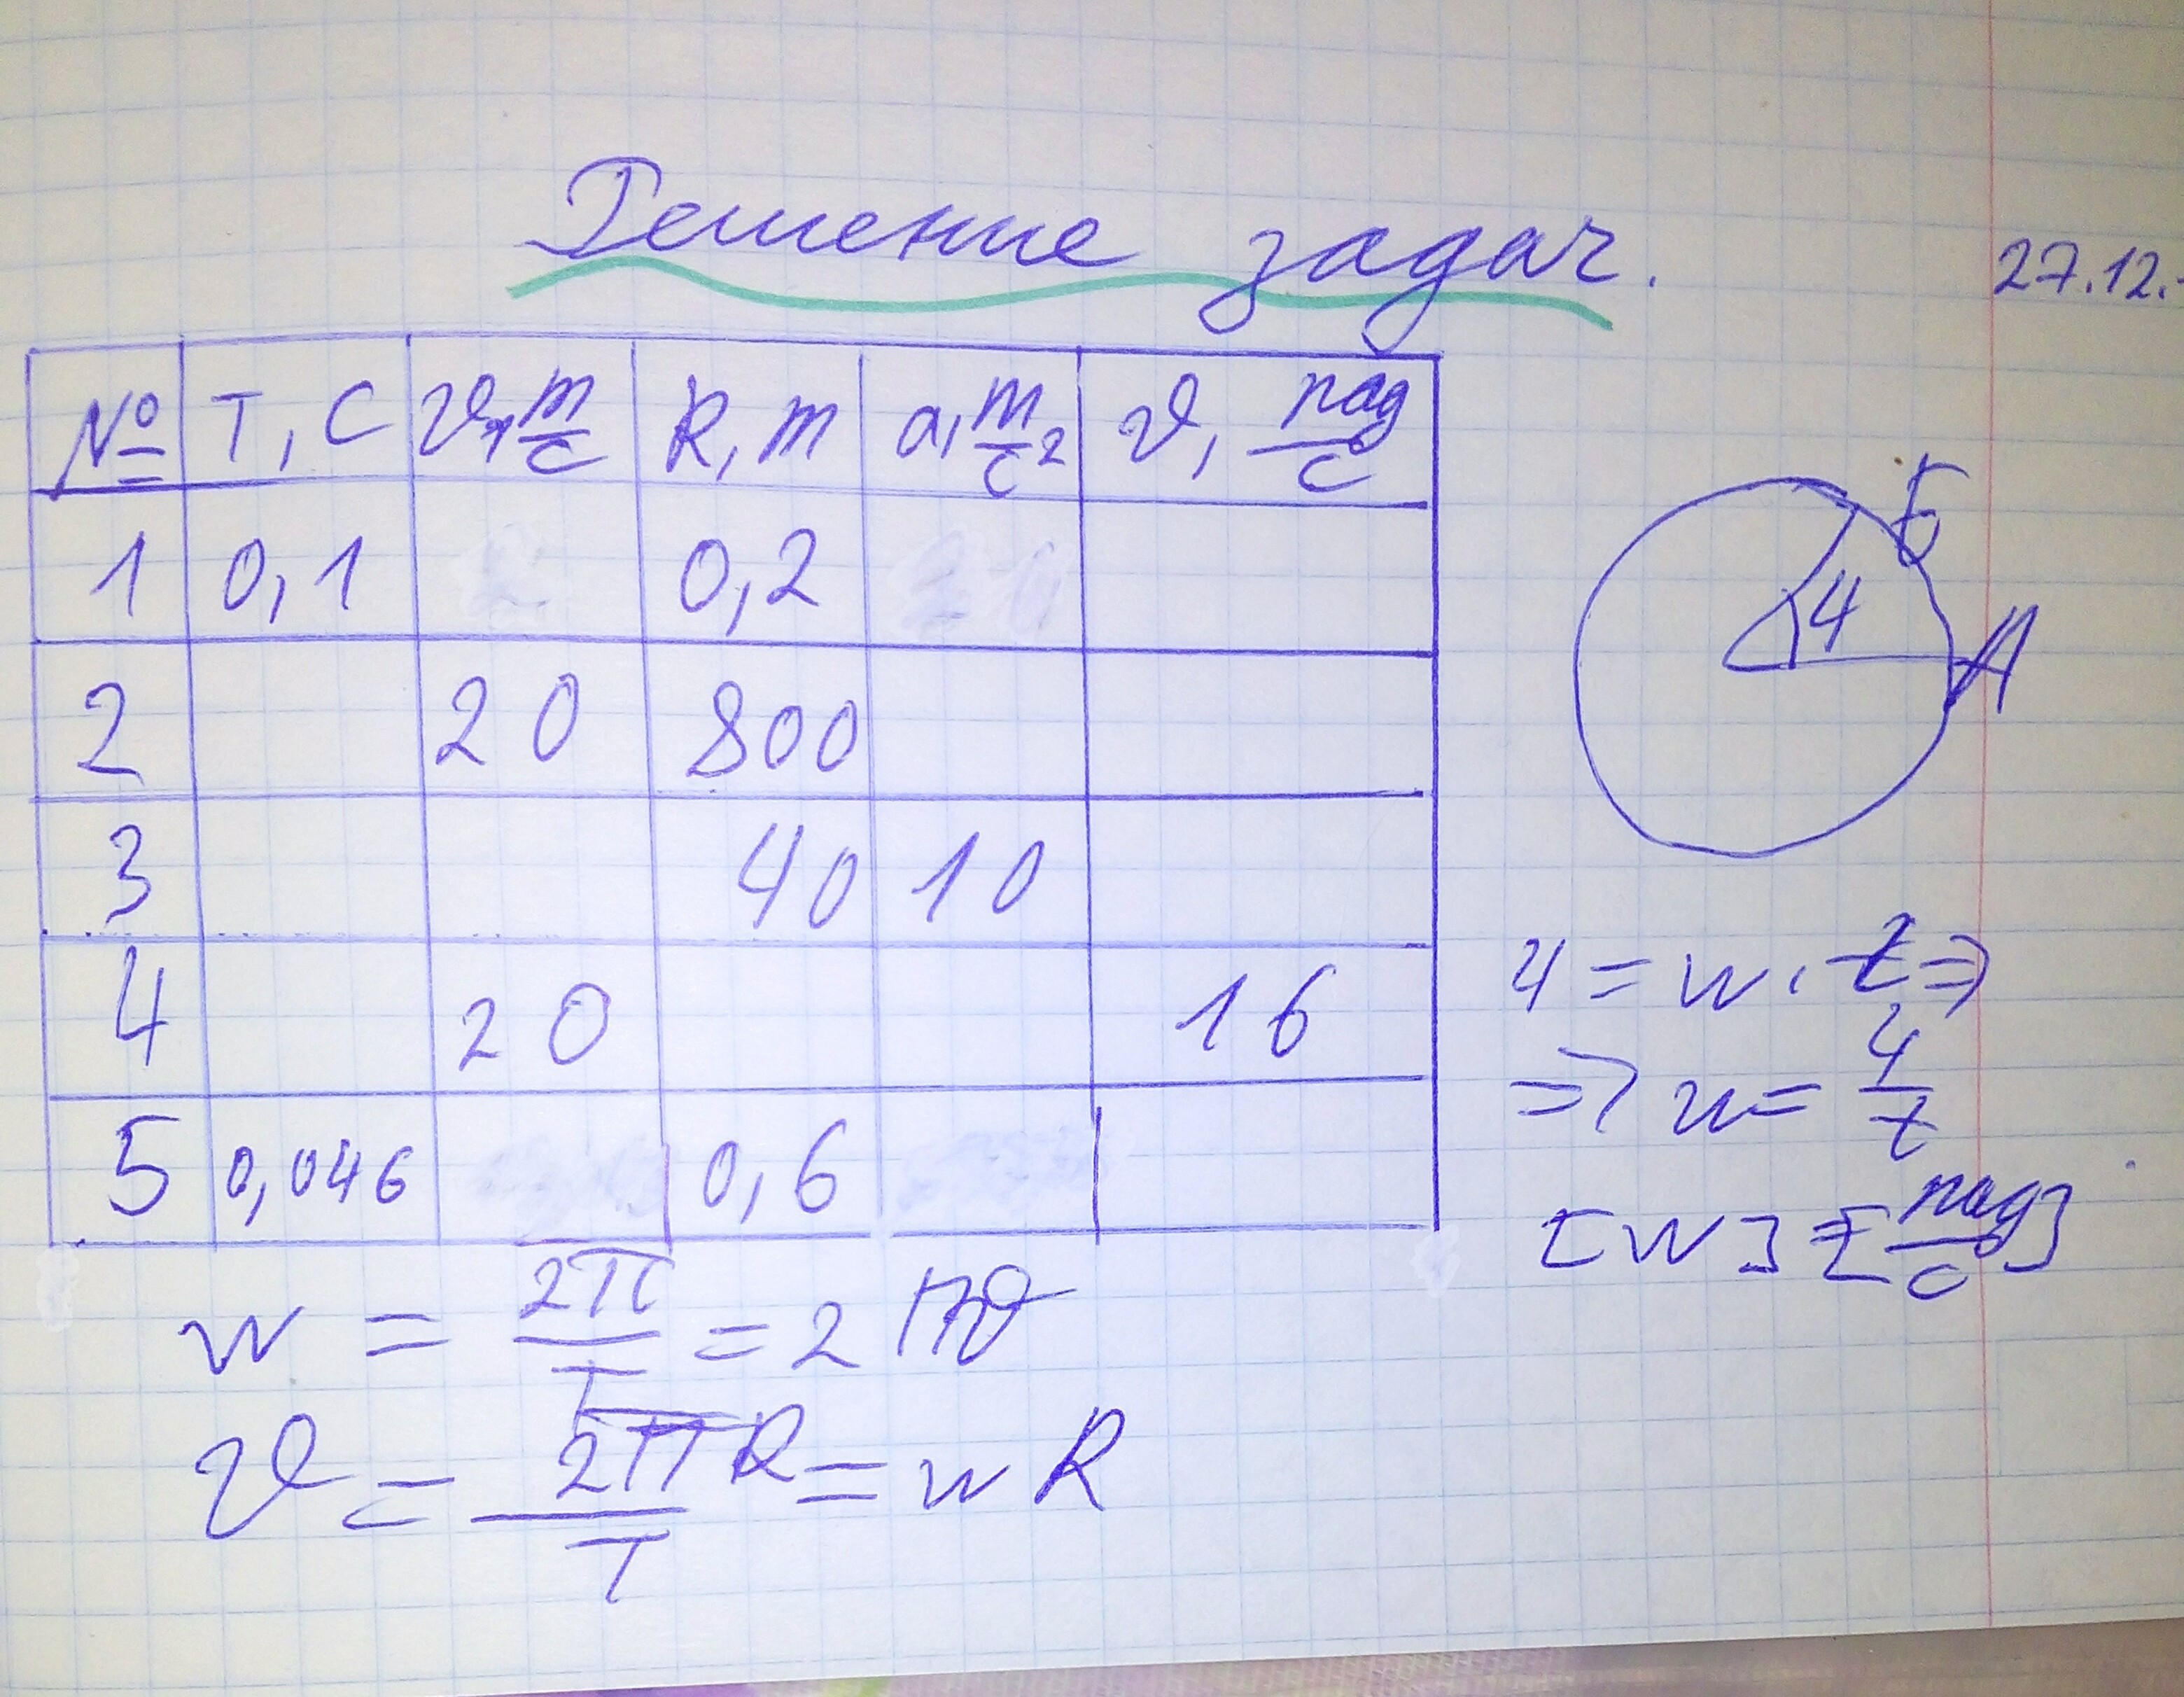 Решение задач.
27.12.
№ T, C υ, м/с R, м a, м/с² υ, рад/с
1 0,1 0,2
2 20 800
3 40 10
4 20 16
5 0,046 0,6
Б
φ
A
φ = w · t =>
=> w = φ/t
[w] = [рад/с]
w = 2π/T = 2πν
υ = 2πR/T = wR